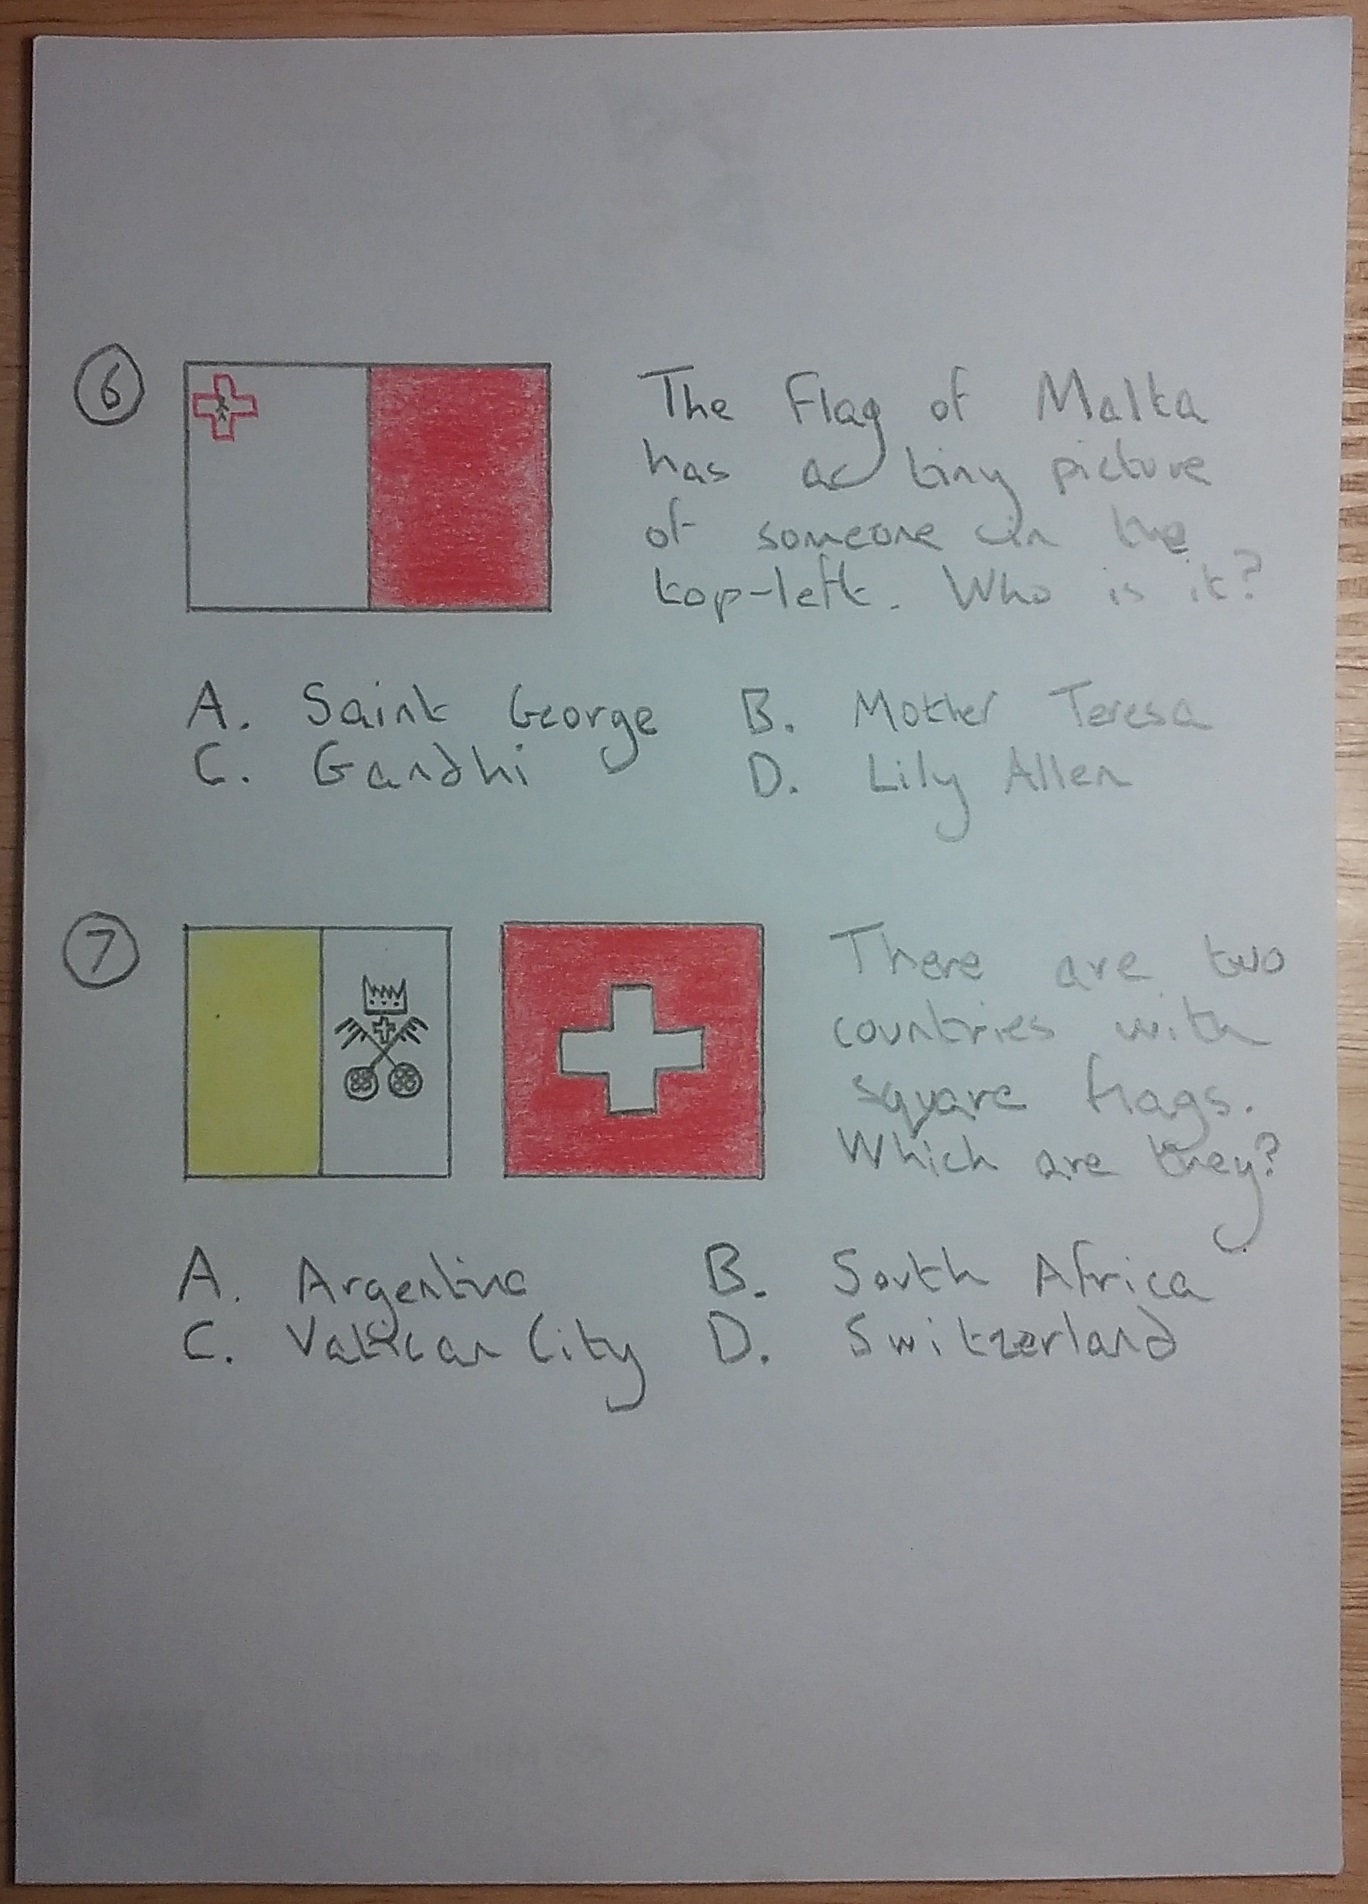 6
The Flag of Malta
has a tiny picture
of someone in the
top-left. Who is it?
A. Saint George B. Mother Teresa
C. Gandhi D. Lily Allen
7
There are two
countries with
square flags.
Which are they?
A. Argentina B. South Africa
C. Vatican City D. Switzerland